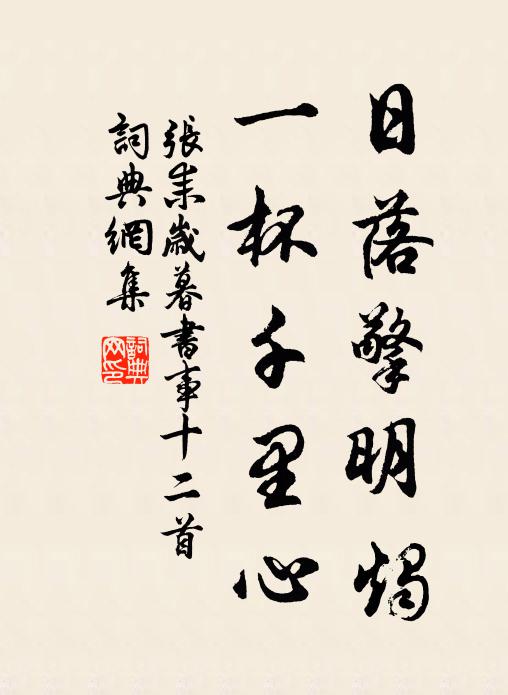 日落擎明燭
一杯千里心
張耒歲暮書事十二首
詞典網集
詞典網印